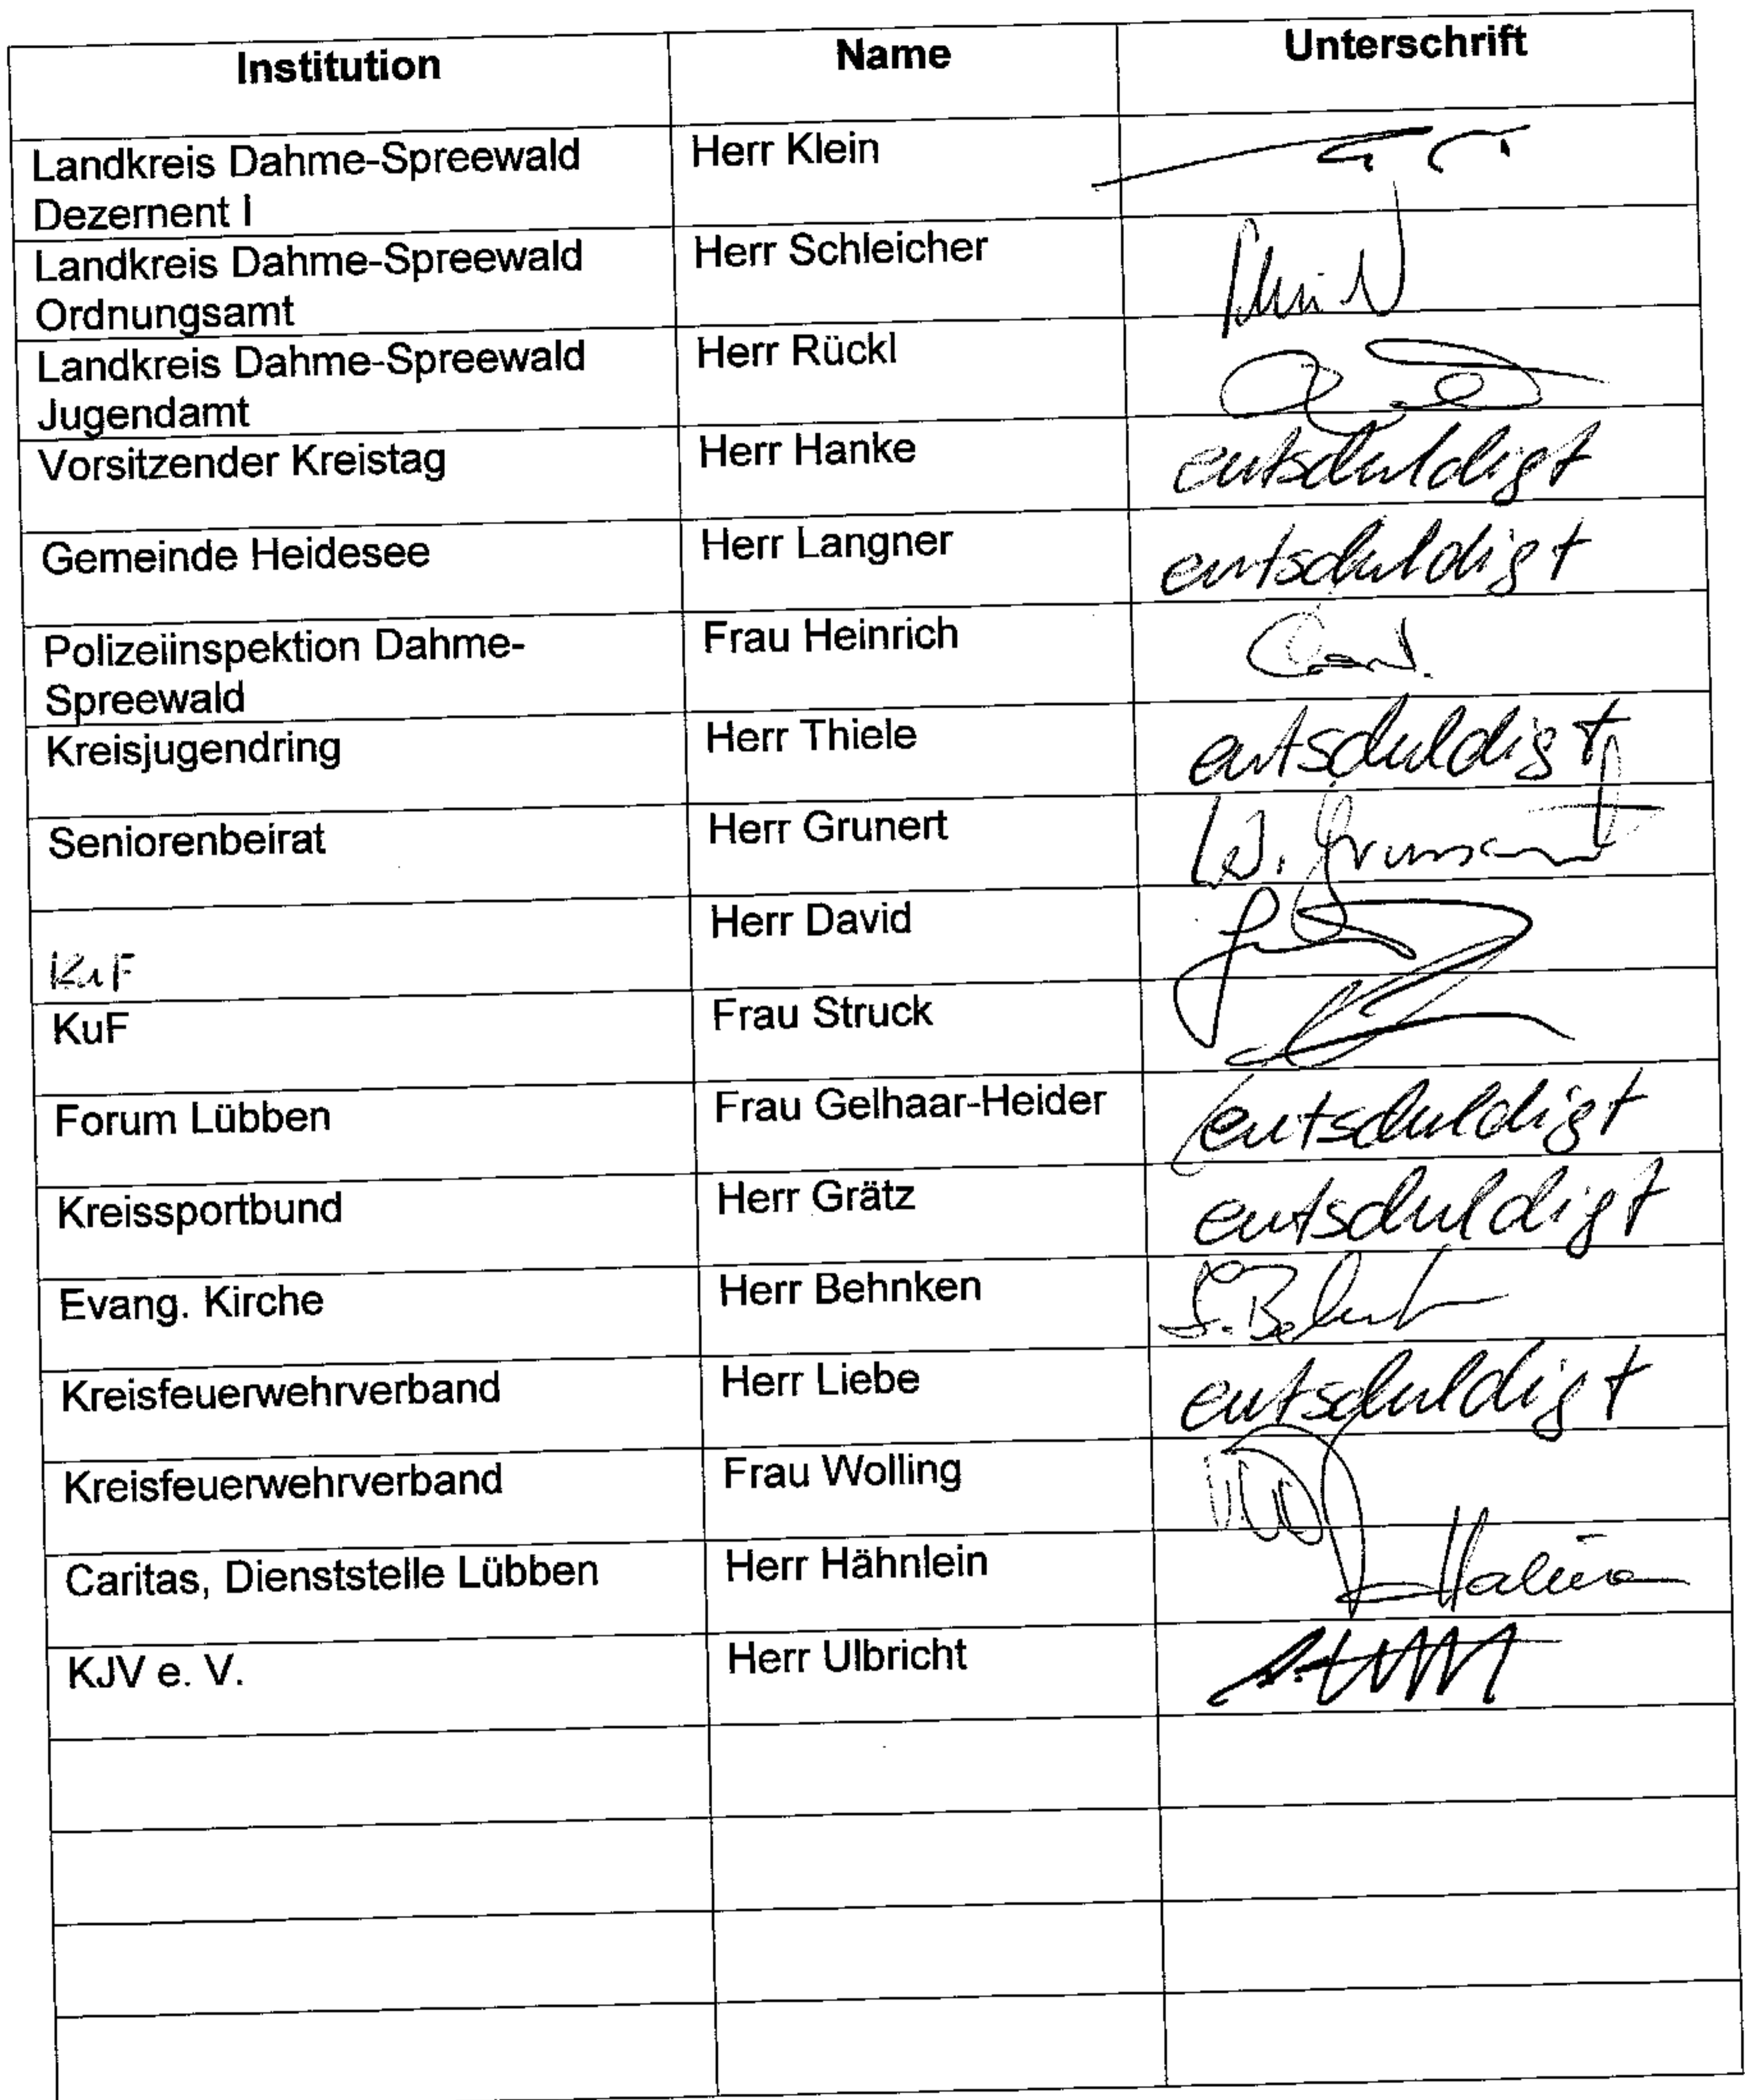 Institution Name Unterschrift
Landkreis Dahme-Spreewald Herr Klein
Dezernent I
Landkreis Dahme-Spreewald Herr Schleicher
Ordnungsamt
Landkreis Dahme-Spreewald Herr Rückl
Jugendamt
Vorsitzender Kreistag Herr Hanke entschuldigt
Gemeinde Heidesee Herr Langner entschuldigt
Polizeiinspektion Dahme- Frau Heinrich
Spreewald
Kreisjugendring Herr Thiele entschuldigt
Seniorenbeirat Herr Grunert W. Grunert
Herr David
KuF
KuF Frau Struck
Forum Lübben Frau Gelhaar-Heider entschuldigt
Kreissportbund Herr Grätz entschuldigt
Evang. Kirche Herr Behnken
Kreisfeuerwehrverband Herr Liebe entschuldigt
Kreisfeuerwehrverband Frau Wolling
Caritas, Dienststelle Lübben Herr Hähnlein
KJV e. V. Herr Ulbricht